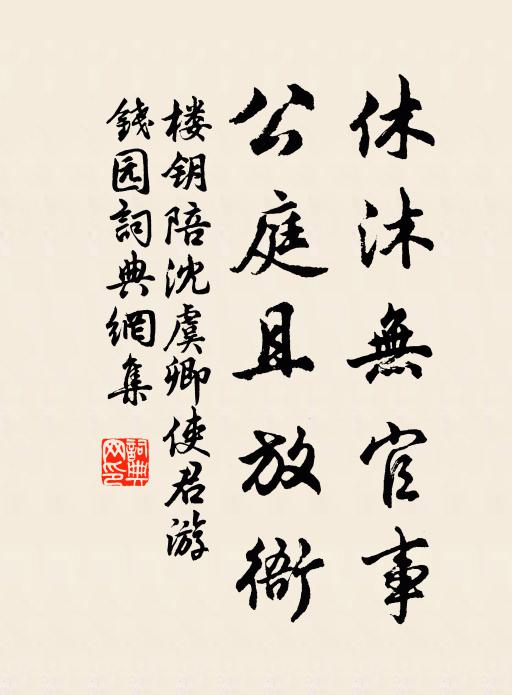 休沐無官事
公庭且放衙
楼钥陪沈虞卿使君游
錢园詞典網集
詞典
网印